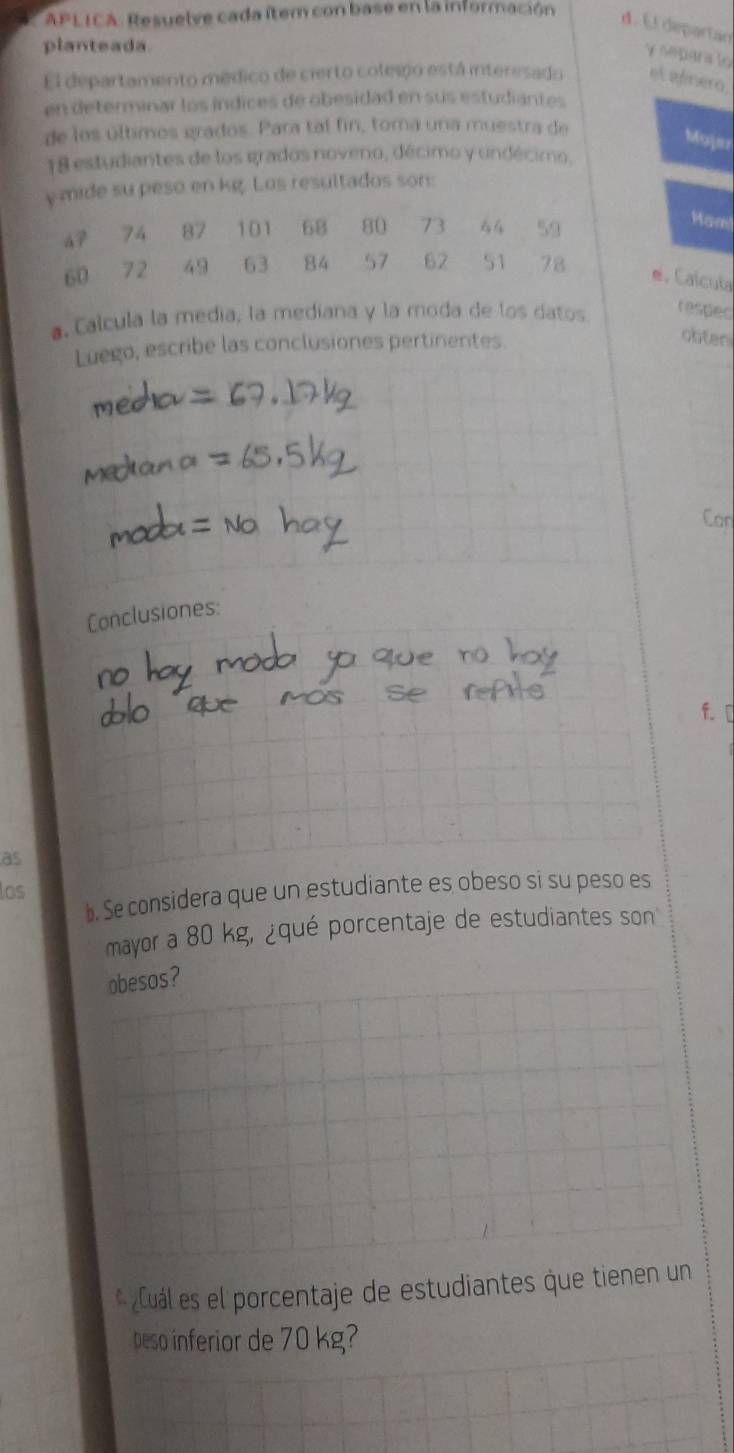 APLICA. Resuelve cada ítem con base en la información
planteada.
El departamento médico de cierto colegio está interesado
en determinar los índices de obesidad en sus estudiantes
de los últimos grados. Para tal fin, toma una muestra de
18 estudiantes de los grados noveno, décimo y undécimo,
y mide su peso en kg. Los resultados son:
47 74 87 101 68 80 73 44 59
60 72 49 63 84 57 62 51 78
a. Calcula la media, la mediana y la moda de los datos.
Luego, escribe las conclusiones pertinentes.
media = 67.17kg
mediana = 65.5kg
moda = No hay
Conclusiones:
no hay moda ya que no hay
que mas se
b. Se considera que un estudiante es obeso si su peso es
mayor a 80 kg, ¿qué porcentaje de estudiantes son
obesos?
c. ¿Cuál es el porcentaje de estudiantes que tienen un
peso inferior de 70 kg?
d. El departam
y separa lo
el género.
Mujer
Hom
e. Calcula
respec
obten
Con
f.
as
los